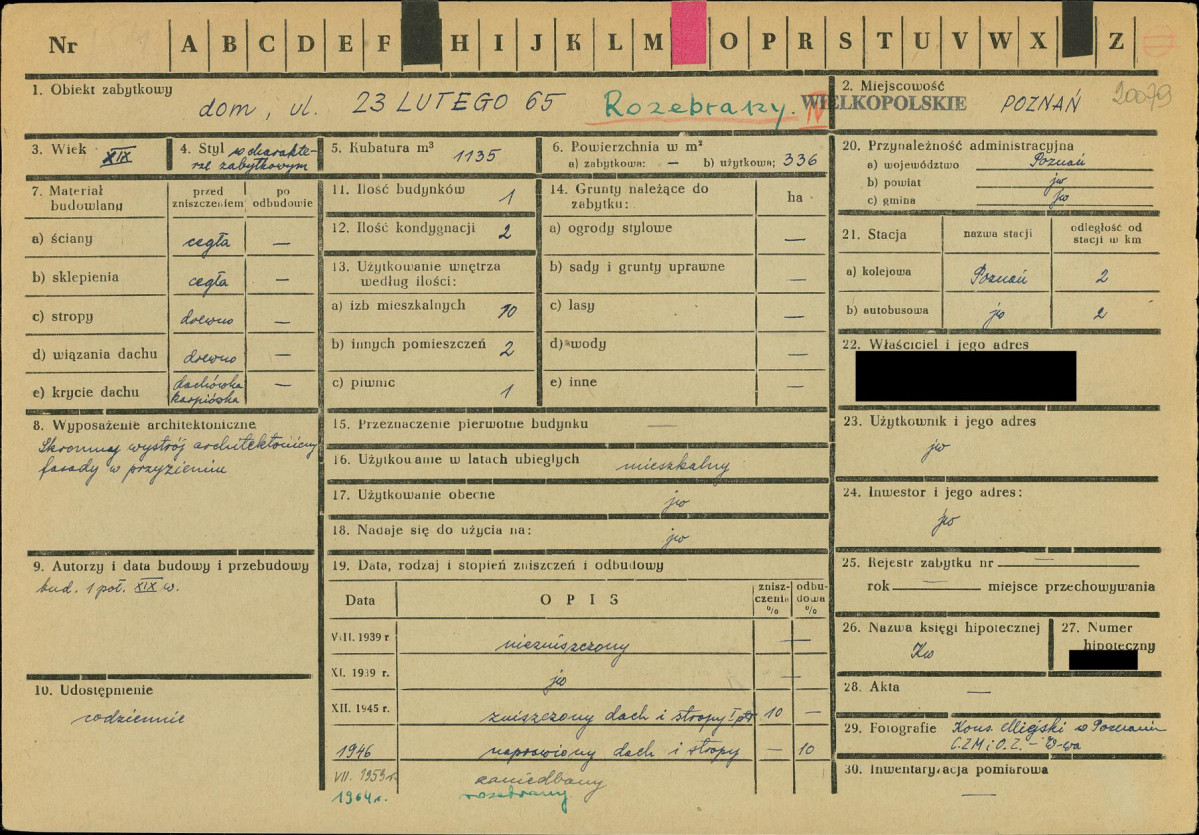 Nr A B C D E F H I J K L M O P R S T U V W X Z
1. Obiekt zabytkowy
dom, ul. 23 LUTEGO 65 Rozebrany.
2. Miejscowość
WIELKOPOLSKIE POZNAŃ 20079
3. Wiek XIX
4. Styl o charakte-
rze zabytkowym
5. Kubatura m³ 1135
6. Powierzchnia w m²
a) zabytkowa: — b) użytkowa: 336
7. Materiał budowlany
przed zniszczeniem
po odbudowie
a) ściany cegła —
b) sklepienia cegła —
c) stropy drewno —
d) wiązania dachu drewno —
e) krycie dachu dachówka karpiówka —
8. Wyposażenie architektoniczne
Skromny wystrój architektoniczny
fasady w przyziemiu
9. Autorzy i data budowy i przebudowy
bud. 1 poł. XIX w.
10. Udostępnienie
codziennie
11. Ilość budynków 1
12. Ilość kondygnacji 2
13. Użytkowanie wnętrza
według ilości:
a) izb mieszkalnych 10
b) innych pomieszczeń 2
c) piwnic 1
14. Grunty należące do
zabytku: ha
a) ogrody stylowe —
b) sady i grunty uprawne —
c) lasy —
d) wody —
e) inne —
15. Przeznaczenie pierwotne budynku —
16. Użytkowanie w latach ubiegłych mieszkalny
17. Użytkowanie obecne jw
18. Nadaje się do użycia na: jw
19. Data, rodzaj i stopień zniszczeń i odbudowy
Data OPIS znisz-czenia % odbu-dowa %
VIII. 1939 r. niezniszczony —
XI. 1939 r. jw —
XII. 1945 r. zniszczony dach i stropy I ptr 10 —
1946 naprawiony dach i stropy — 10
VII. 1959 r. zaniedbany
1964 r. rozebrany.
20. Przynależność administracyjna
a) województwo Poznań
b) powiat jw
c) gmina jw
21. Stacja nazwa stacji odległość od stacji w km
a) kolejowa Poznań 2
b) autobusowa jw 2
22. Właściciel i jego adres
23. Użytkownik i jego adres
jw
24. Inwestor i jego adres:
jw
25. Rejestr zabytku nr —
rok — miejsce przechowywania
26. Nazwa księgi hipotecznej
Kw
27. Numer
hipoteczny
28. Akta —
29. Fotografie Kons. Miejski w Poznaniu
C.Z.M i O.Z. – W-wa
30. Inwentaryzacja pomiarowa
—